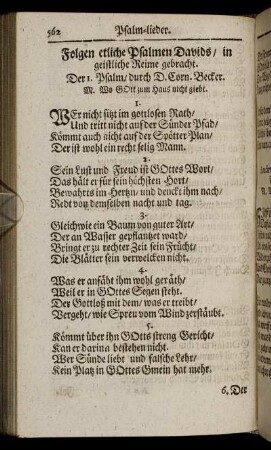 562 Psalm-lieder.
Folgen etliche Psalmen Davids/ in
geistliche Reime gebracht.
Der 1. Psalm/ durch D. Corn. Becker.
M. Wo GOtt zum Haus nicht giebt.
1.
WEr nicht sitzt im gottlosen Rath/
Und tritt nicht auf der Sünder Pfad/
Kömmt auch nicht auf der Spötter Plan/
Der ist wohl ein recht selig Mann.
2.
Sein Lust und Freud ist GOttes Wort/
Das hält er für sein höchsten Hort/
Bewahrts im Hertzn/ und denckt ihm nach/
Redt von demselben nacht und tag.
3.
Gleichwie ein Baum von guter Art/
Der an Wasser gepflantzet ward/
Bringt er zu rechter Zeit sein Frücht/
Die Blätter sein verwelcken nicht.
4.
Was er anfäht ihm wohl geräth/
Weil er in GOttes Segen steht.
Der Gottloß mit dem/ was er treibt/
Vergeht/ wie Spreu vom Wind zerstäubt.
5.
Kömmt über ihn GOtts streng Gericht/
Kan er darinn bestehen nicht.
Wer Sünde liebt und falsche Lehr/
Kein Platz in GOttes Gmein hat mehr.
6. Der